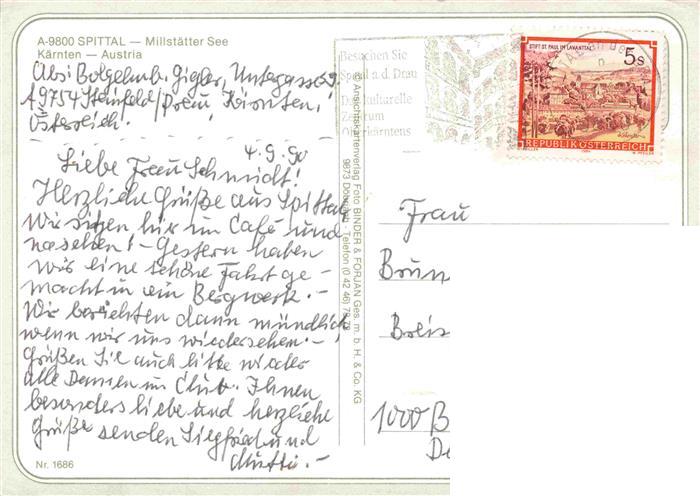 A-9800 SPITTAL — Millstätter See
Kärnten — Austria
Gigler, Untergasse
A 9754 Steinfeld/Drau, Kärnten,
Österreich.
4.9.90
Liebe Frau Schmidt!
Herzliche Grüße aus Spittal
Wir sitzen hier im Café und
naschen! - Gestern haben
wir eine schöne Fahrt ge-
macht in ein Bergwerk. -
Wir berichten dann mündlich
wenn wir uns wiedersehen. -
Grüßen Sie auch bitte wieder
alle Damen im Club. Ihnen
besonders liebe und herzliche
Grüße senden Siegfried und
Mutti. -
Nr. 1686
© Ansichtskartenverlag Foto BINDER & FORJAN Ges. m. b. H. & Co. KG
9873 Döbriach - Telefon (0 42 46)
Besuchen Sie
Spittal a.d. Drau
Das kulturelle
Zentrum
Oberkärntens
STIFT ST. PAUL IM LAVANTTAL
5 S
REPUBLIK ÖSTERREICH
Frau
Brun
Breis
1000 B